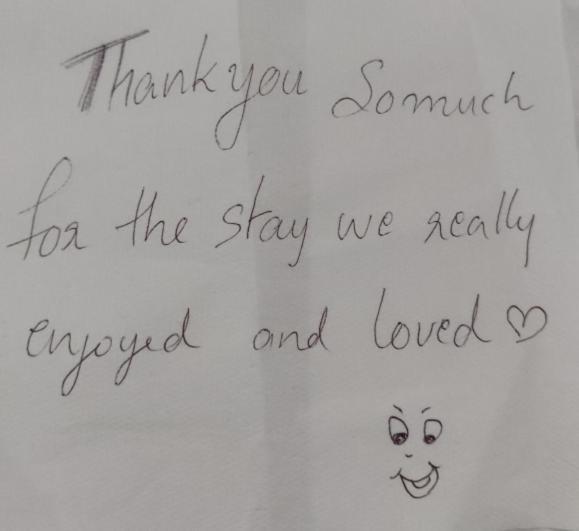 Thank you So much
for the stay we really
enjoyed and loved ♡